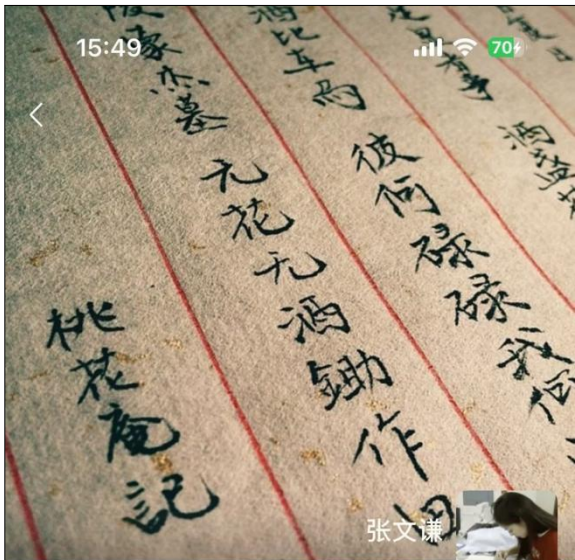 15:49
70
酒盏
酒比车马 彼何碌碌我何
豪杰墓 无花无酒鋤作田
桃花庵記
张文谦